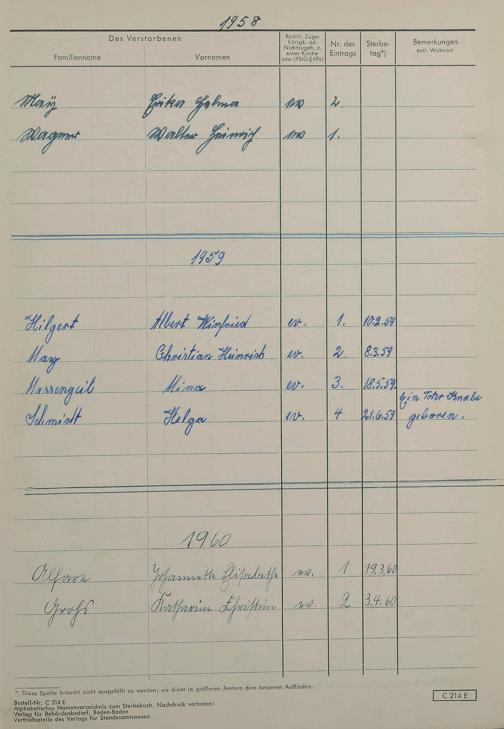 1958
Des Verstorbenen
Familienname Vornamen Nr. des Eintrags Sterbe-tag*) Bemerkungen evtl. Wohnort
May Erika 2.
Wagner Walter Heinrich 1.
1959
Hilgert Albert Winfried ev. 1. 10.2.59
May Christian Heinrich ev. 2. 8.3.59
Massengeil Mina ev. 3. 18.5.59.
Schmidt Helga ev. 4 21.6.59 Ein Toter Knabe geboren.
1960
Johannette Elisabethe ev. 1 19.3.60
Grohs Katharine Christine ev. 2 3.4.60
*) Diese Spalte braucht nicht ausgefüllt zu werden; sie dient in größeren Ämtern dem besseren Auffinden.
Bestell-Nr. C 214 E
Alphabetisches Namenverzeichnis zum Sterbebuch. Nachdruck verboten!
Verlag für Behördenbedarf, Baden-Baden
Vertriebsstelle des Verlags für Standesamtswesen
C 214 E